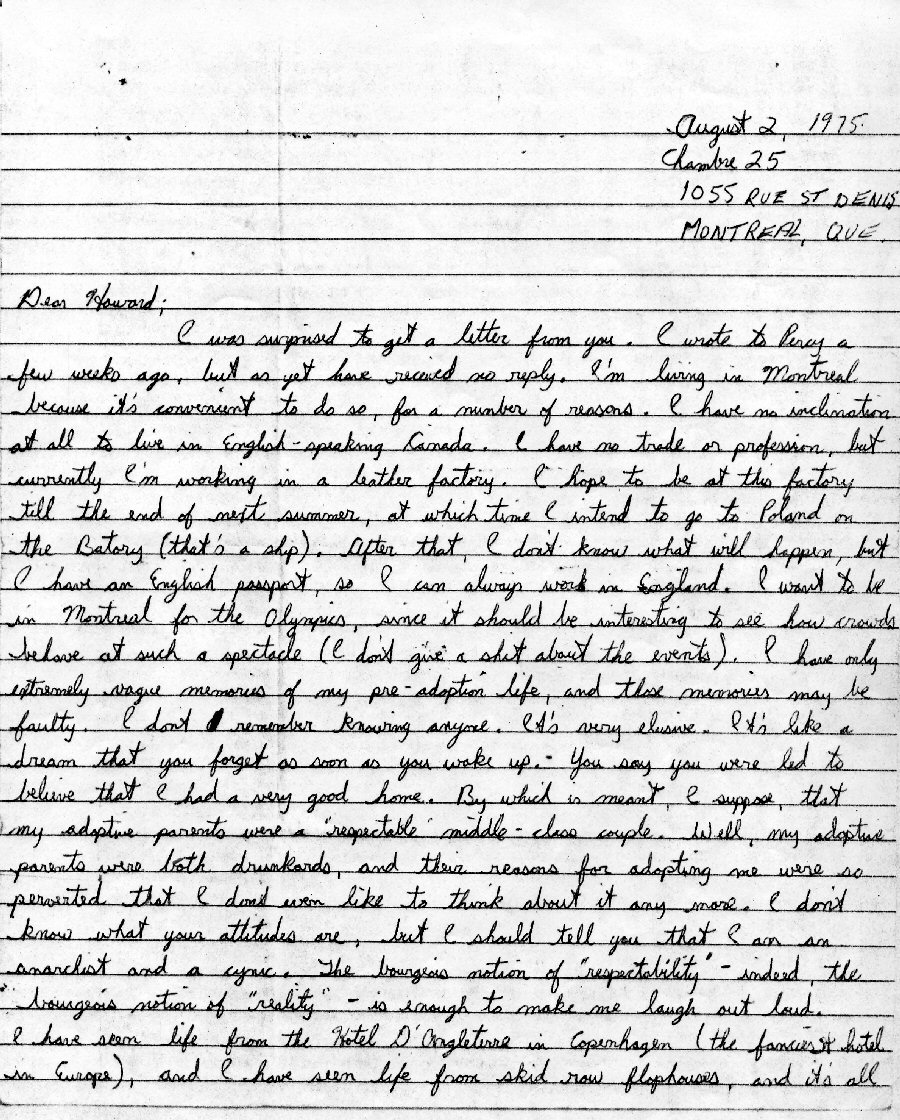 August 2, 1975.
Chambre 25
1055 RUE ST DENIS
MONTREAL, QUE.
Dear Howard;
I was surprised to get a letter from you. I wrote to Percy a
few weeks ago, but as yet have received no reply. I'm living in Montreal
because it's convenient to do so, for a number of reasons. I have no inclination
at all to live in English-speaking Canada. I have no trade or profession, but
currently I'm working in a leather factory. I hope to be at this factory
till the end of next summer, at which time I intend to go to Poland on
the Batory (that's a ship). After that, I don't know what will happen, but
I have an English passport, so I can always work in England. I want to be
in Montreal for the Olympics, since it should be interesting to see how crowds
behave at such a spectacle (I don't give a shit about the events). I have only
extremely vague memories of my pre-adoption life, and those memories may be
faulty. I dont remember knowing anyone. It's very elusive. It's like a
dream that you forget as soon as you wake up. - You say you were led to
believe that I had a very good home. By which is meant, I suppose, that
my adoptive parents were a "respectable" middle-class couple. Well, my adoptive
parents were both drunkards, and their reasons for adopting me were so
perverted that I don't even like to think about it any more. I don't
know what your attitudes are, but I should tell you that I am an
anarchist and a cynic. The bourgeois notion of "respectability" - indeed, the
bourgeois notion of "reality" - is enough to make me laugh out loud.
I have seen life from the Hotel D'Angleterre in Copenhagen (the fanciest hotel
in Europe), and I have seen life from skid row flophouses, and it's all